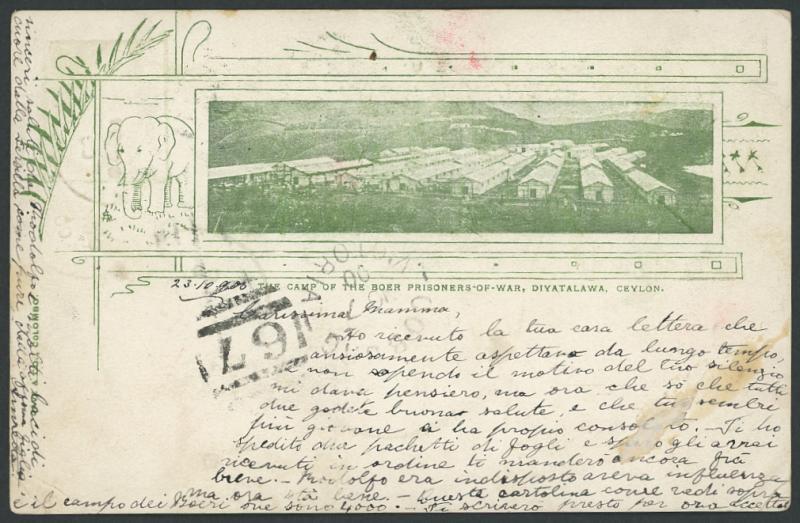 THE CAMP OF THE BOER PRISONERS-OF-WAR, DIYATALAWA, CEYLON.
23.10.900
Carissima Mamma,
Ho ricevuto la tua cara lettera che
ansiosamente aspettavo da lungo tempo,
non sapendo il motivo del tuo silenzio
mi dava pensiero, ma ora che so che tutti
due godete buona salute, e che tu sembri
più giovane ci ha proprio consolato. - Ti ho
spedito due pachetti di fogli e spero gli avrai
ricevuti in ordine ti manderò ancora fra
breve. - Rodolfo era indisposto aveva influenza
ma ora sta bene. - Questa cartolina come vedi sopra
è il campo dei Boeri che sono 4000. - Ti scriverò presto per ora accetta
sinceri saluti dal Rodolfo e baci di
cuore dalla come pure dalla tua figlia
VICTORIA
167